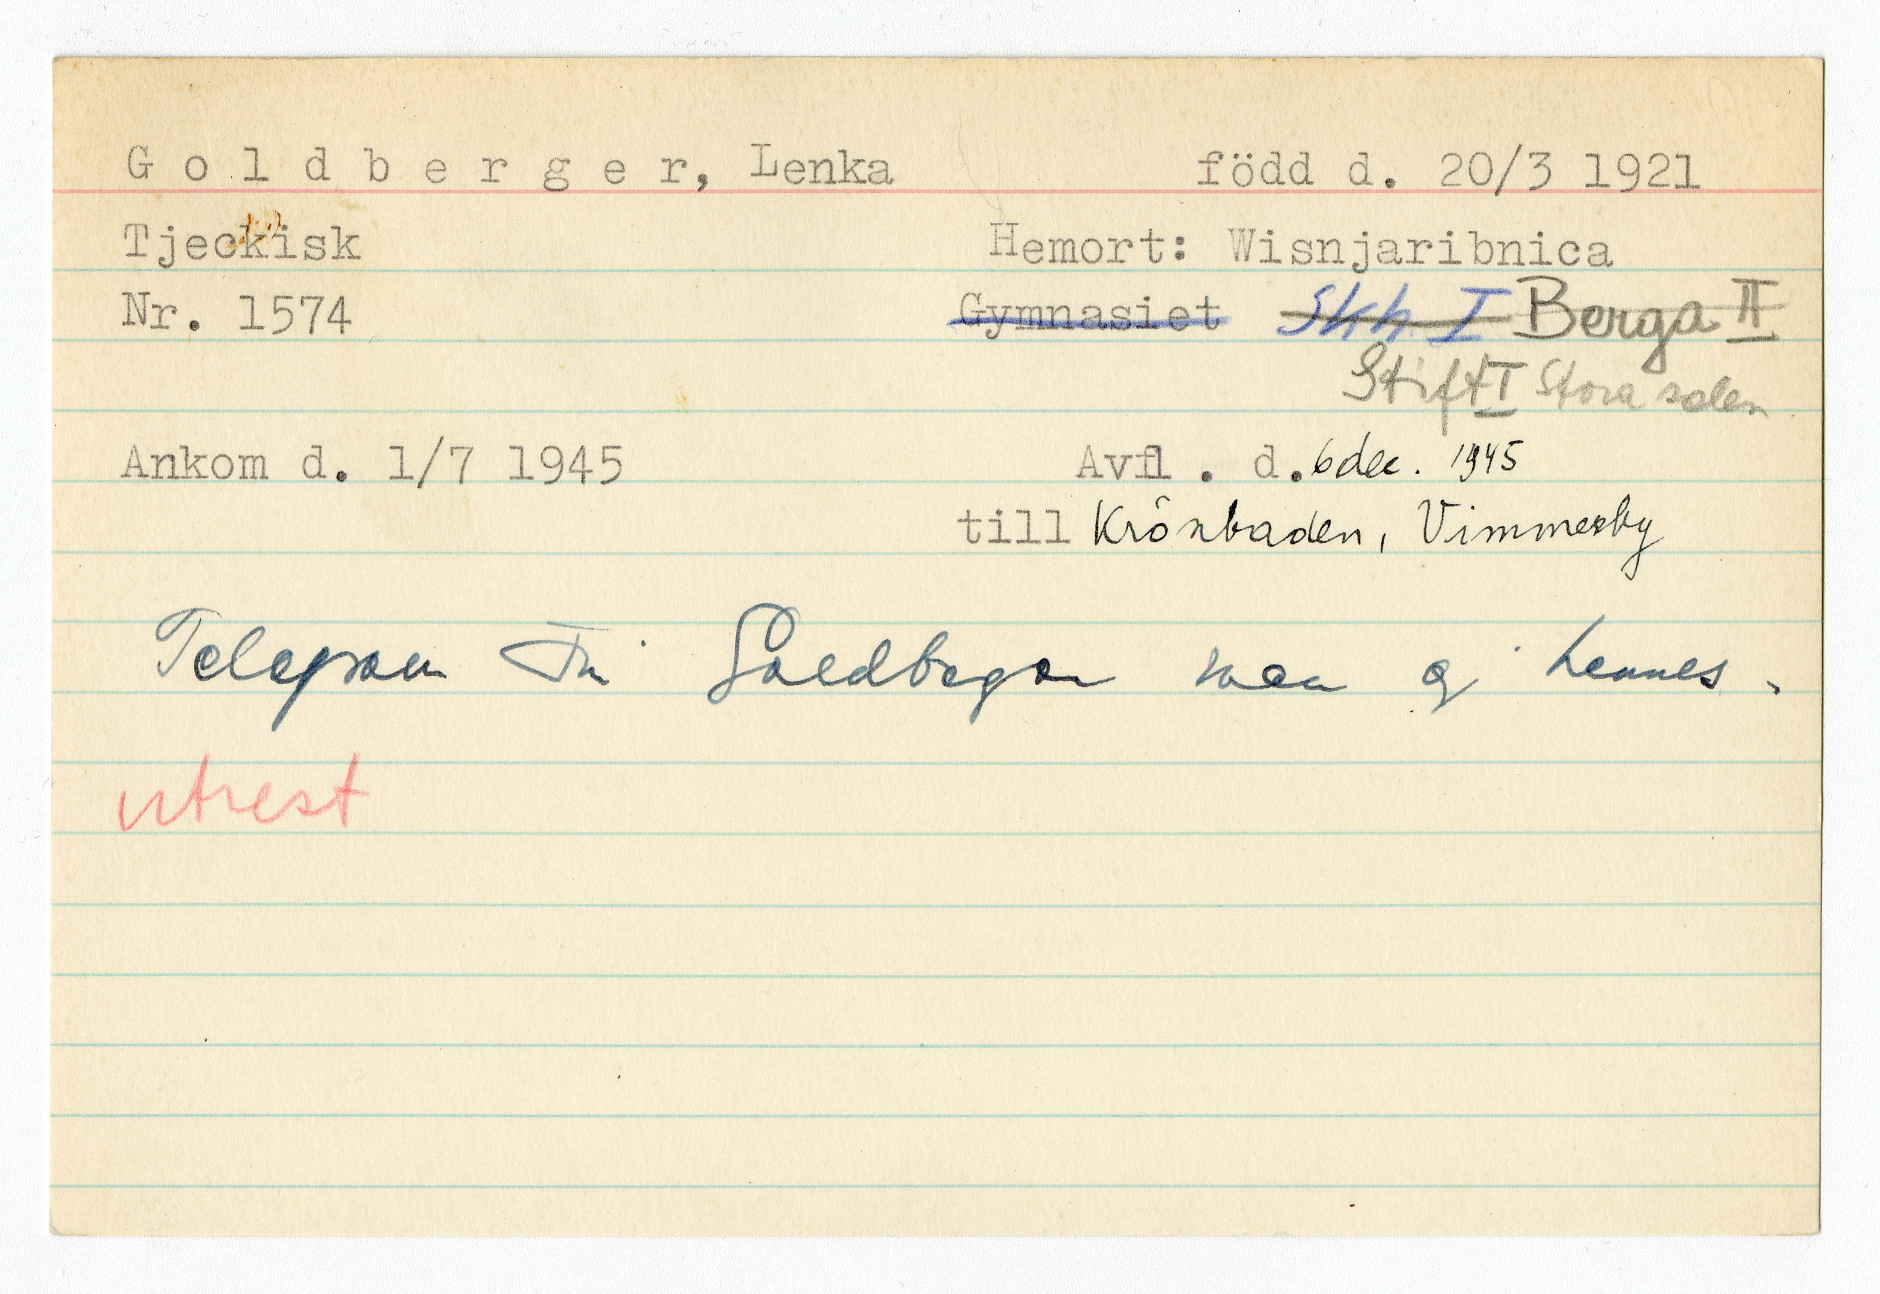 Goldberger, Lenka född d. 20/3 1921
Tjeckisk Hemort: Wisnjaribnica
Nr. 1574 Gymnasiet Skh I Berga II
Stift I Stora salen
Ankom d. 1/7 1945 Avfl . d. 6 dec. 1945
till Krönbaden, Vimmerby
Telegram Goldberger men ej hennes.
utrest